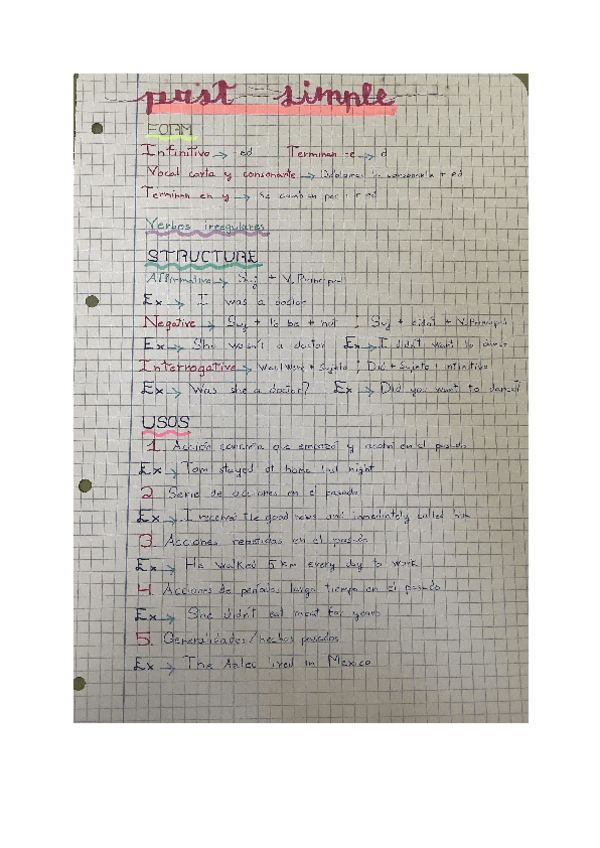 past simple
FORM
Infinitivo → ed Terminan -e → d
Vocal corta y consonante → consonante + ed
Terminan en y → se cambian por i + ed
Verbos irregulares
STRUCTURE
Affirmative → Suj + V. Principal
Ex → I was a doctor
Negative → Suj + to be + not ; Suj + didn't + V. Principal
Ex → She wasn't a doctor Ex → I didn't want to dance
Interrogative → Was/Were + Sujeto ; Did + Sujeto + infinitivo
Ex → Was she a doctor? Ex → Did you want to dance?
USOS
1. Acción que empezó y acabó en el pasado
Ex → Tom stayed at home last night
2 Serie de acciones en el pasado
Ex → I received the good news and immediately called him
3 Acciones repetidas en el pasado
Ex → He walked 5 km every day to work
4. Acciones de periodos largo tiempo en el pasado
Ex → She didn't eat meat for years
5. Generalidades/hechos pasados
Ex → The Aztec lived in Mexico